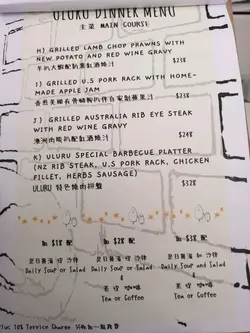 ULURU DINNER MENU
主菜 MAIN COURSE:
H) GRILLED LAMB CHOP PRAWNS WITH
NEW POTATO AND RED WINE GRAVY
$238
I) GRILLED U.S PORK RACK WITH HOME-
MADE APPLE JAM
$238
J) GRILLED AUSTRALIA RIB EYE STEAK
WITH RED WINE GRAVY
$248
K) ULURU SPECIAL BARBECUE PLATTER
(NZ RIB STEAK, U.S PORK RACK, CHICKEN
FILLET, HERBS SAUSAGE)
$258
ULURU 特色燒肉拼盤
加 $18 配
加 $28 配
加 $38 配
是日餐湯 或 沙律
是日餐湯 或 沙律
是日餐湯 加 沙律
Daily Soup or Salad
Daily Soup or Salad
Daily Soup and Salad
&
&
茶 或 咖啡
茶 或 咖啡
Tea or Coffee
Tea or Coffee
Plus 10% Service Charge 另收加一服務費